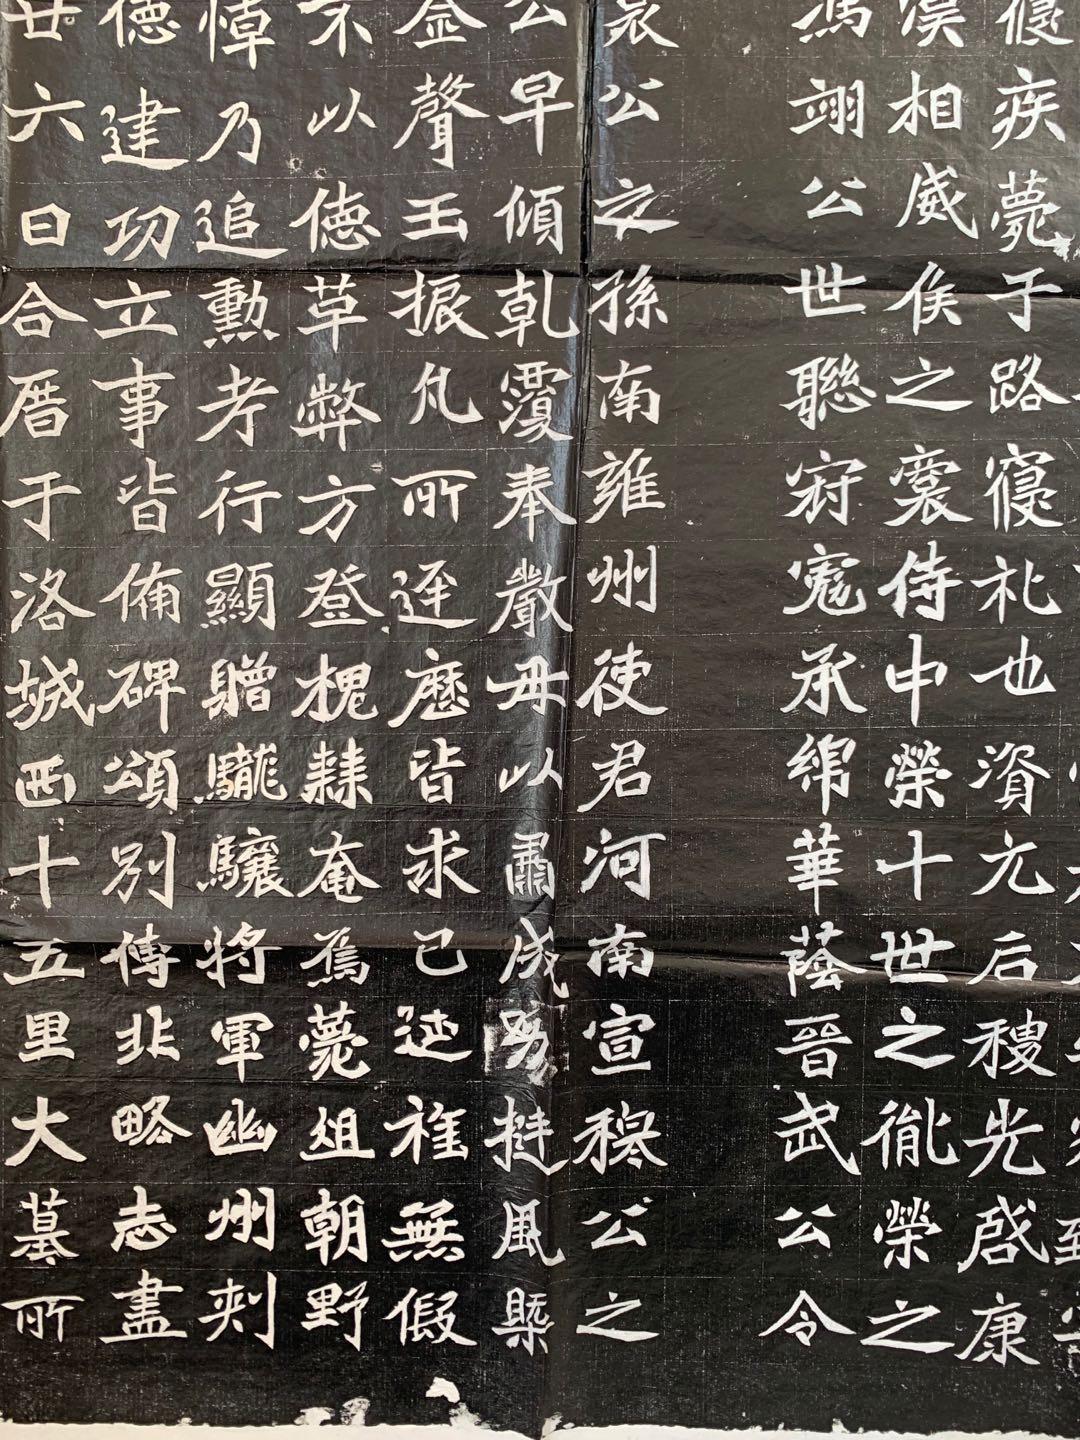 寝疾薨子路寝礼也資元后稷光啓康
漢相威侯之裔侍中榮十世之胤榮之
馮翊公世聯冠冕承綿華蔭晉武公令
哀公之孫南雍州使君河南宣穆公之
公早傾乾覆奉嚴母以肅成易挺風槩
金聲玉振凡所逕歷皆求己延雅無假
不以德草弊方登槐棘奄焉薨殂朝野
悼乃追勳考行顯贈驍驤將軍幽州刺
德建功立事皆備碑頌別傳非略志盡
廿六日合厝于洛城西十五里大墓所